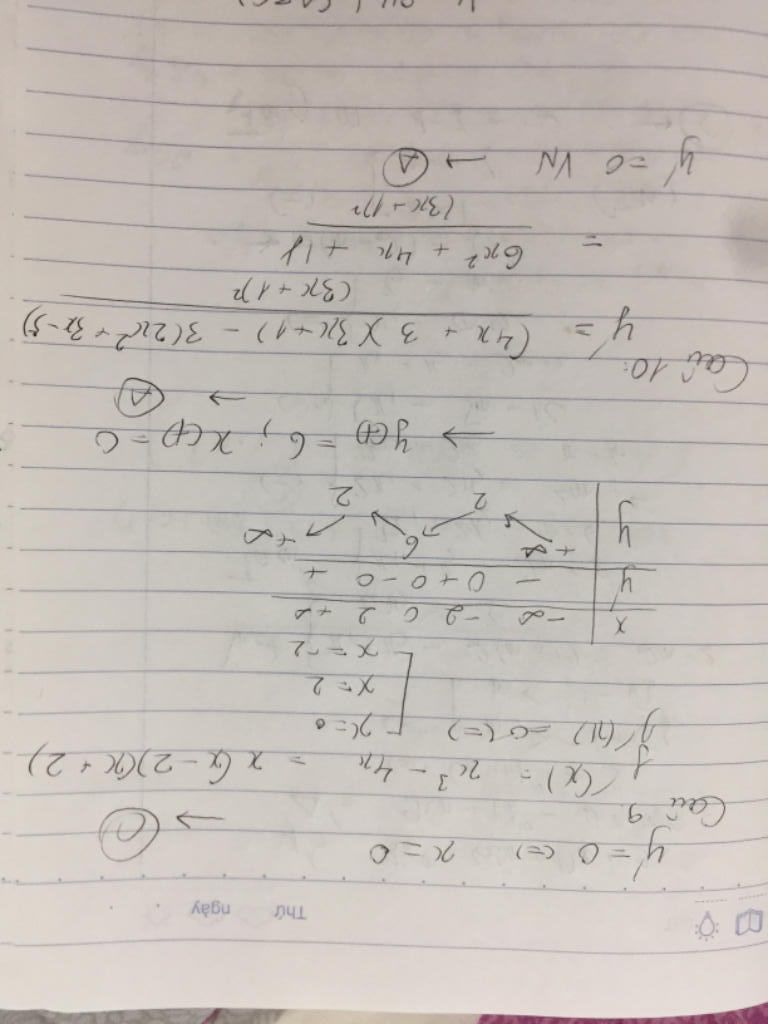 Thứ ngày
y' = 0 (=) x = 0 → C
Câu 9
y'(x) = x³ - 4x = x(x - 2)(x + 2)
y'(x) = 0 (=) [ x = 0
x = 2
x = -2
x | -∞ -2 0 2 +∞
y' | - 0 + 0 - 0 +
y | +∞ 2 6 2 +∞
→ y(1) = 6 ; x(1) = 0 → A
Câu 10:
y' = (4x + 3)(3x + 1) - 3(2x² + 3x - 5)
(3x + 1)²
= 6x² + 4x + 18
(3x + 1)²
y' = 0 VN → A